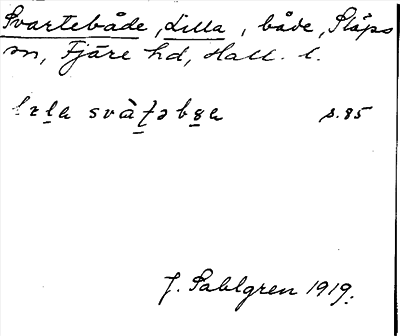 Svartebåde, Lilla, både, Släps
sn, Fjäre hd, Hall. l.
s. 85
J. Sahlgren 1919.